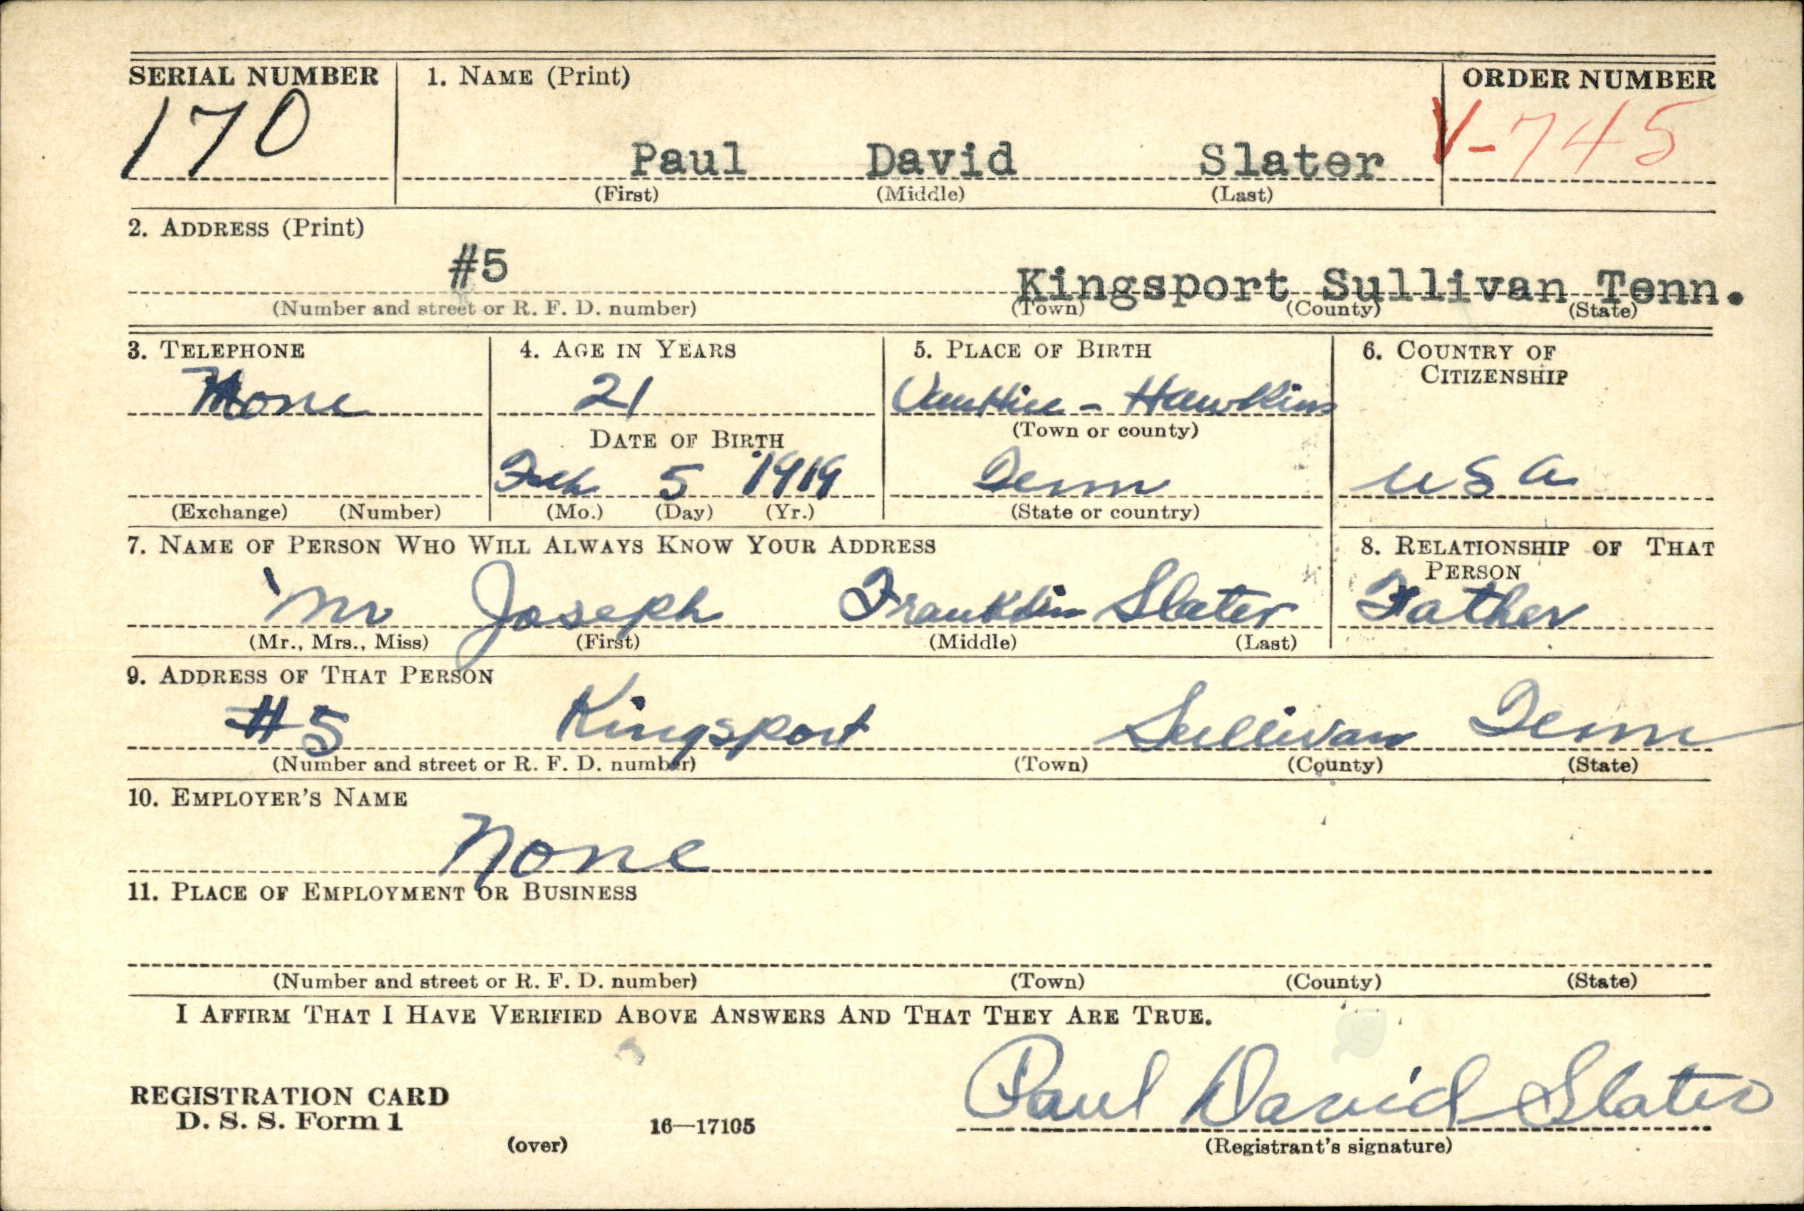 SERIAL NUMBER 1. NAME (Print) ORDER NUMBER
170 Paul David Slater V-745
(First) (Middle) (Last)
2. ADDRESS (Print)
#5 Kingsport Sullivan Tenn.
(Number and street or R. F. D. number) (Town) (County) (State)
3. TELEPHONE 4. AGE IN YEARS 5. PLACE OF BIRTH 6. COUNTRY OF
CITIZENSHIP
None 21 - Hawkins
DATE OF BIRTH (Town or county)
Feb 5 1919 Tenn USA
(Exchange) (Number) (Mo.) (Day) (Yr.) (State or country)
7. NAME OF PERSON WHO WILL ALWAYS KNOW YOUR ADDRESS 8. RELATIONSHIP OF THAT
PERSON
Mr Joseph Franklin Slater Father
(Mr., Mrs., Miss) (First) (Middle) (Last)
9. ADDRESS OF THAT PERSON
#5 Kingsport Sullivan Tenn
(Number and street or R. F. D. number) (Town) (County) (State)
10. EMPLOYER'S NAME
None
11. PLACE OF EMPLOYMENT OR BUSINESS
(Number and street or R. F. D. number) (Town) (County) (State)
I AFFIRM THAT I HAVE VERIFIED ABOVE ANSWERS AND THAT THEY ARE TRUE.
REGISTRATION CARD
D. S. S. Form 1 16—17105 Paul David Slater
(over) (Registrant's signature)